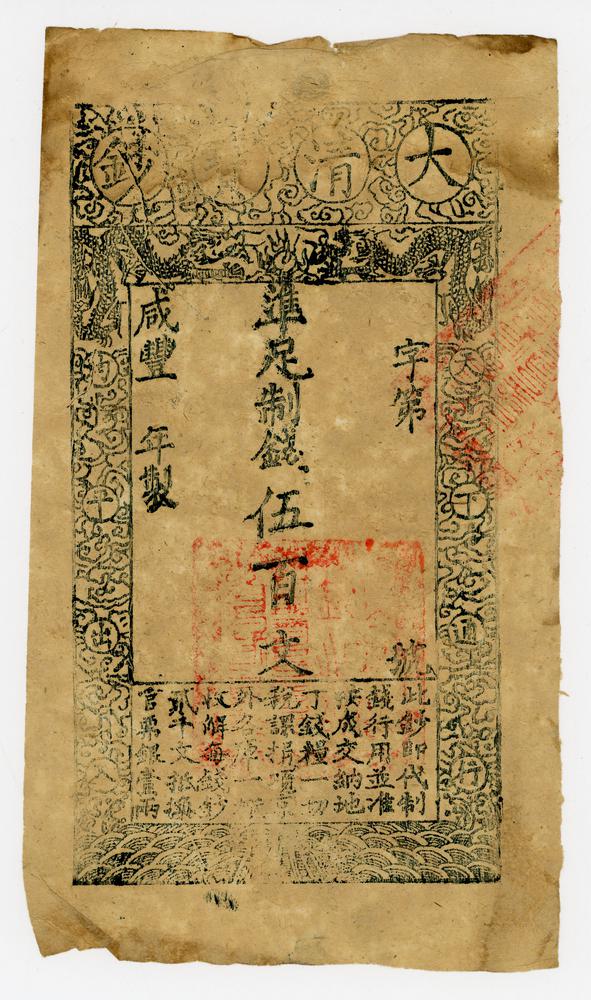 大清寶鈔
天下通行
字第 號
準足制錢伍百文
咸豐 年製
均平出入
此鈔即代制
錢行用並准
按成交納地
丁錢糧一切
稅課捐項京
外各庫一概
收解每錢鈔
貳千文抵換
官票銀壹兩